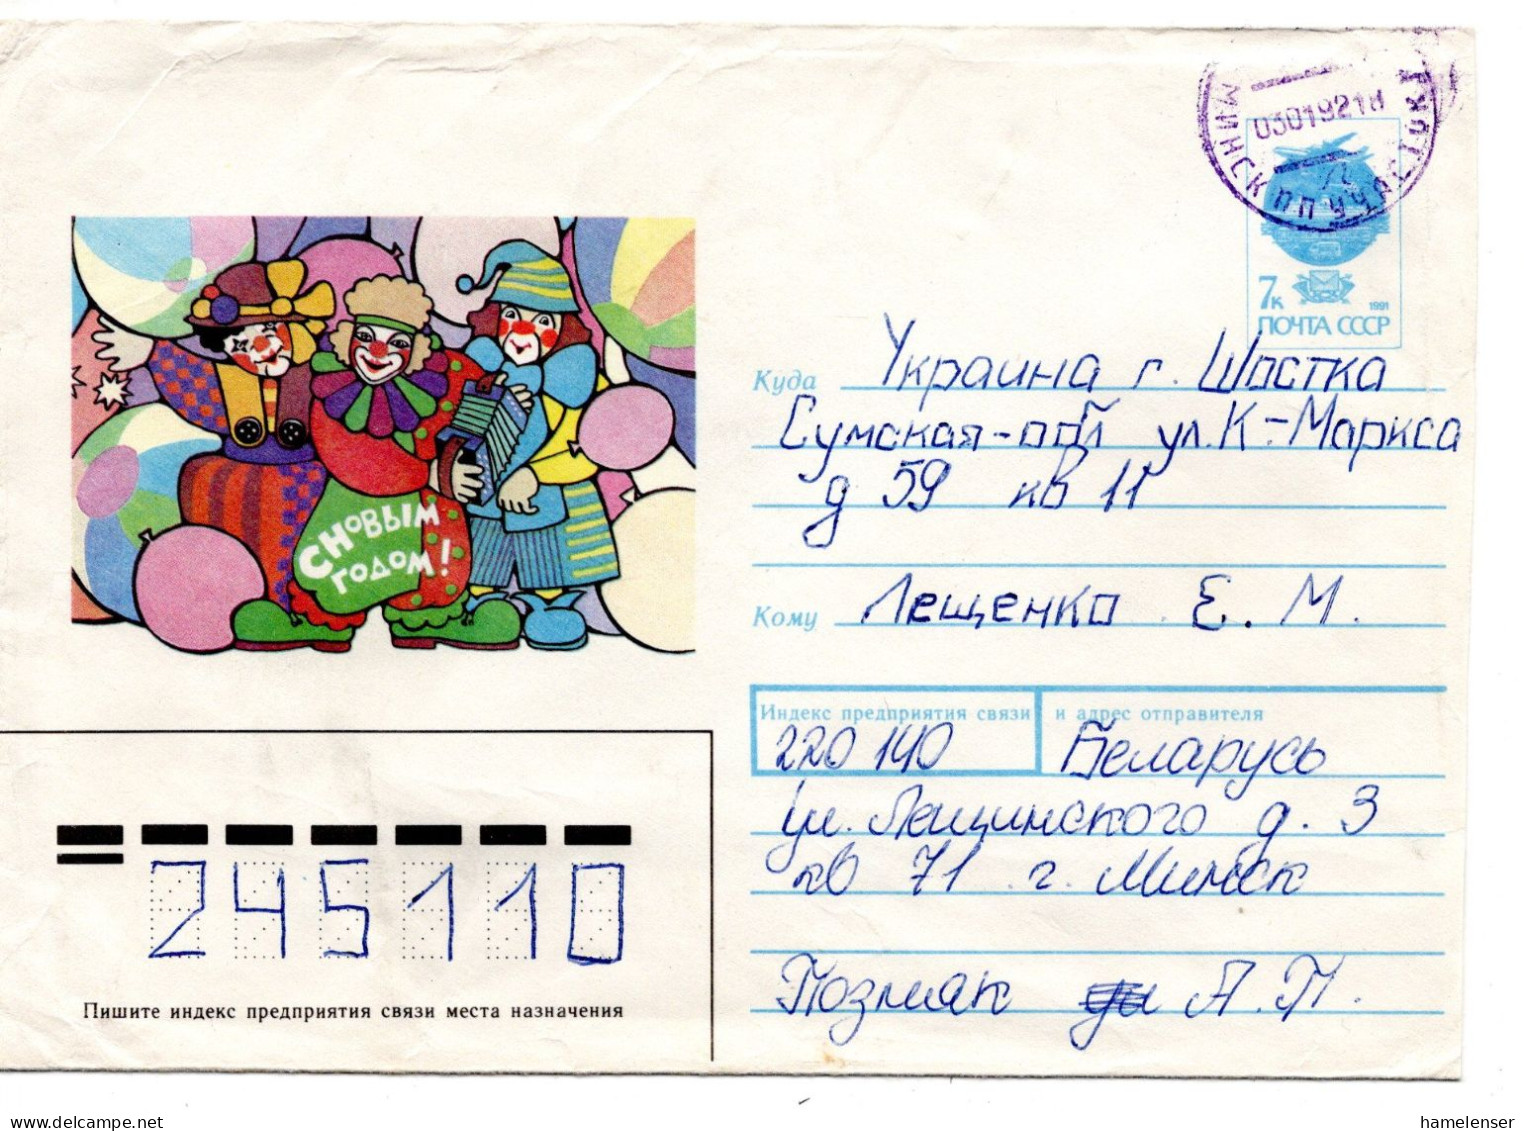 МИНСК ПЦ
03019218
7к
1991
ПОЧТА СССР
Куда Украина г. Шостка
Сумская-обл ул. К-Маркса
д 59 кв 11
Кому Лещенко Е. М.
С НОВЫМ
ГОДОМ!
Индекс предприятия связи и адрес отправителя
220140 Беларусь
ул. Лещинского д. 3
кв 71 г. Минск
Позняк А. П.
245110
Пишите индекс предприятия связи места назначения
hamelenser